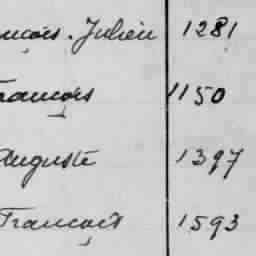 ançois. Julien 1281
François 1150
Auguste 1397
François 1593